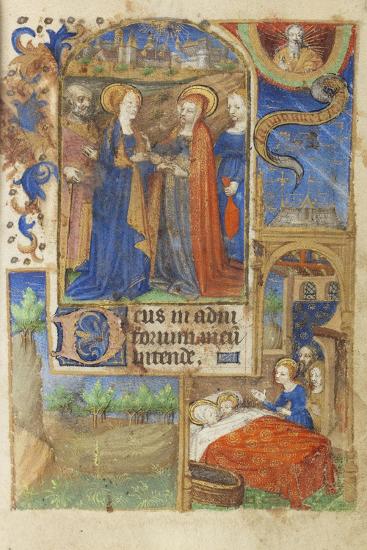 Deus in adiu
torium meum
intende.